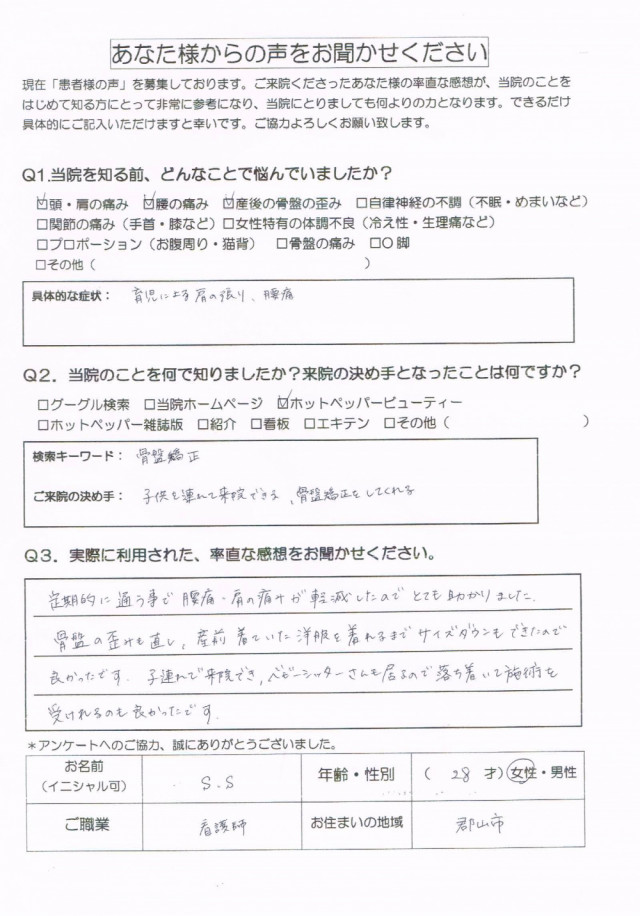 あなた様からの声をお聞かせください
現在「患者様の声」を募集しております。ご来院くださったあなた様の率直な感想が、当院のことを
はじめて知る方にとって非常に参考になり、当院にとりましても何よりの力となります。できるだけ
具体的にご記入いただけますと幸いです。ご協力よろしくお願い致します。
Q1.当院を知る前、どんなことで悩んでいましたか？
☑頭・肩の痛み ☑腰の痛み ☑産後の骨盤の歪み □自律神経の不調（不眠・めまいなど）
□関節の痛み（手首・膝など）□女性特有の体調不良（冷え性・生理痛など）
□プロポーション（お腹周り・猫背） □骨盤の痛み □O脚
□その他（ ）
具体的な症状： 育児による肩の張り、腰痛
Q2．当院のことを何で知りましたか？来院の決め手となったことは何ですか？
□グーグル検索 □当院ホームページ ☑ホットペッパービューティー
□ホットペッパー雑誌版 □紹介 □看板 □エキテン □その他（ ）
検索キーワード： 骨盤矯正
ご来院の決め手： 子供を連れて来院できる、骨盤矯正をしてくれる
Q3．実際に利用された、率直な感想をお聞かせください。
定期的に通う事で腰痛・肩の痛みが軽減したのでとても助かりました。
骨盤の歪みも直し、産前着ていた洋服を着れるまでサイズダウンもできたので
良かったです。子連れで来院でき、ベビーシッターさんも居るので落ち着いて施術を
受けれるのも良かったです。
＊アンケートへのご協力、誠にありがとうございました。
お名前（イニシャル可） S.S 年齢・性別 （ 28 才）女性・男性
ご職業 看護師 お住まいの地域 郡山市